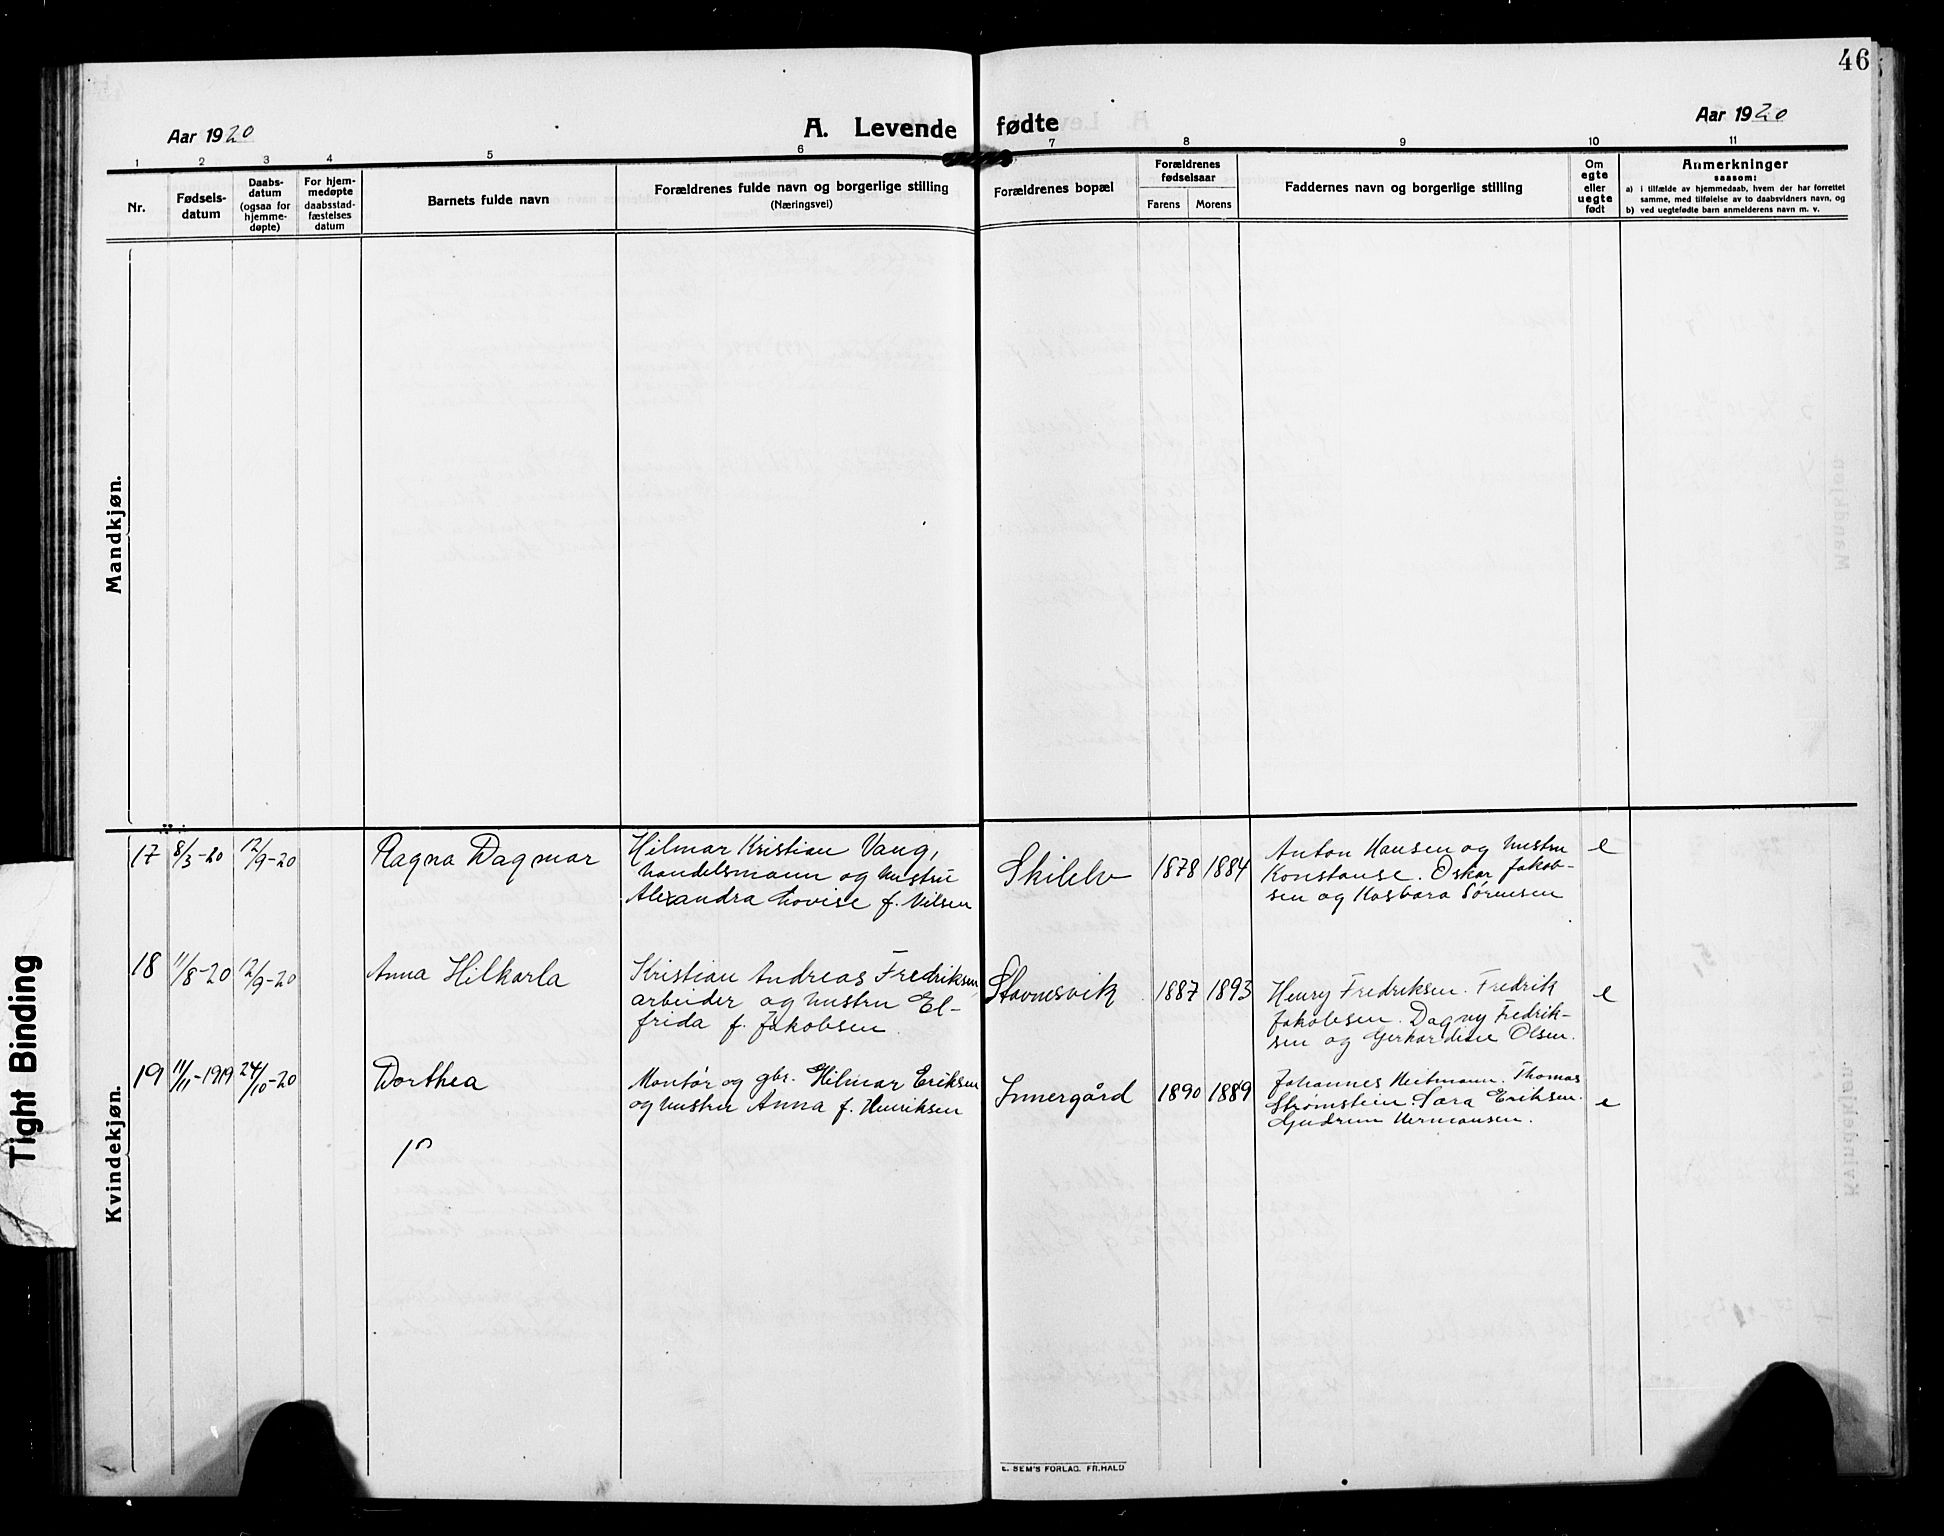 46
Aar 1920
A. Levende fødte
Aar 1920
1 2 3 4 5 6 7 8 9 10 11
Nr.
Fødsels-
datum
Daabs-
datum
(ogsaa for
hjemme-
døpte)
For hjem-
medøpte
daabsstad-
fæstelses
datum
Barnets fulde navn
Forældrenes fulde navn og borgerlige stilling
(Næringsvei)
Forældrenes bopæl
Forældrenes
fødselsaar
Farens Morens
Faddernes navn og borgerlige stilling
Om
egte
eller
uegte
født
Anmerkninger
saasom:
a) i tilfælde av hjemmedaab, hvem der har forrettet
samme, med tilføielse av to daabsvidners navn, og
b) ved uegtefødte barn anmelderens navn m. v.
Mandkjøn.
Kvindekjøn.
17 8/3-20 12/9-20 Ragna Dagmar
Hilmar Kristian Vang,
handelsmann og hustru
Alexandra Lovise f. Nilsen
Skilelv 1878 1884
Anton Hansen og hustru
Konstanse. Oskar Jakob-
sen og Hasbara Sørensen
e
18 11/8-20 12/9-20 Anna Hilkarla
Kristian Andreas Fredriksen
arbeider og hustru El-
frida f. Jakobsen.
Stavnesvik 1887 1893
Henry Fredriksen. Fredrik
Jakobsen. Dagny Fredrik-
sen og Gerhardine Olsen.
e
19 11/11-1919 24/10-20 Dorthea
Montør og gbr. Hilmar Eriksen
og hustru Anna f. Henriksen
Innergård 1890 1889
Johannes Heitmann. Thomas
Strømstein. Sara Eriksen.
Gudrun Hermansen.
e
Tight Binding
E. SEM'S FORLAG. FR.HALD